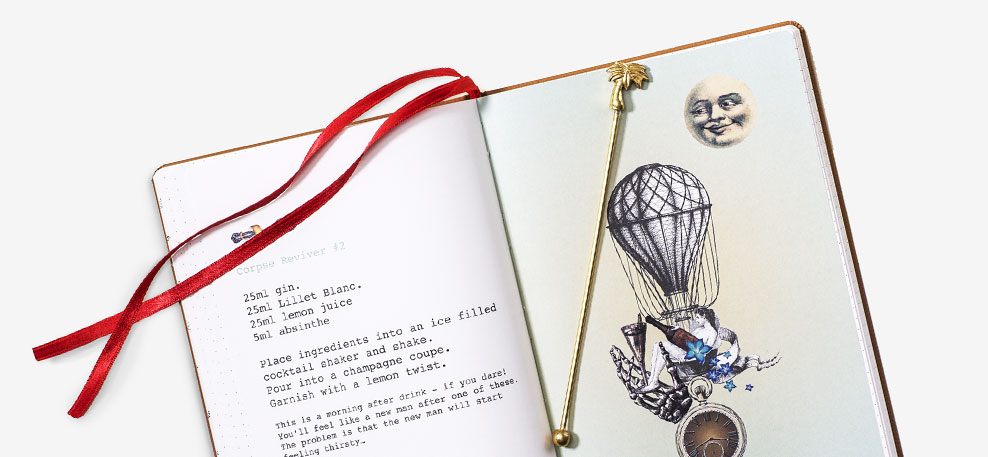 Corpse Reviver #2
25ml gin.
25ml Lillet Blanc.
25ml lemon juice
5ml absinthe
Place ingredients into an ice filled
cocktail shaker and shake.
Pour into a champagne coupe.
Garnish with a lemon twist.
This is a morning after drink - if you dare!
You'll feel like a new man after one of these.
The problem is that the new man will start
feeling thirsty…